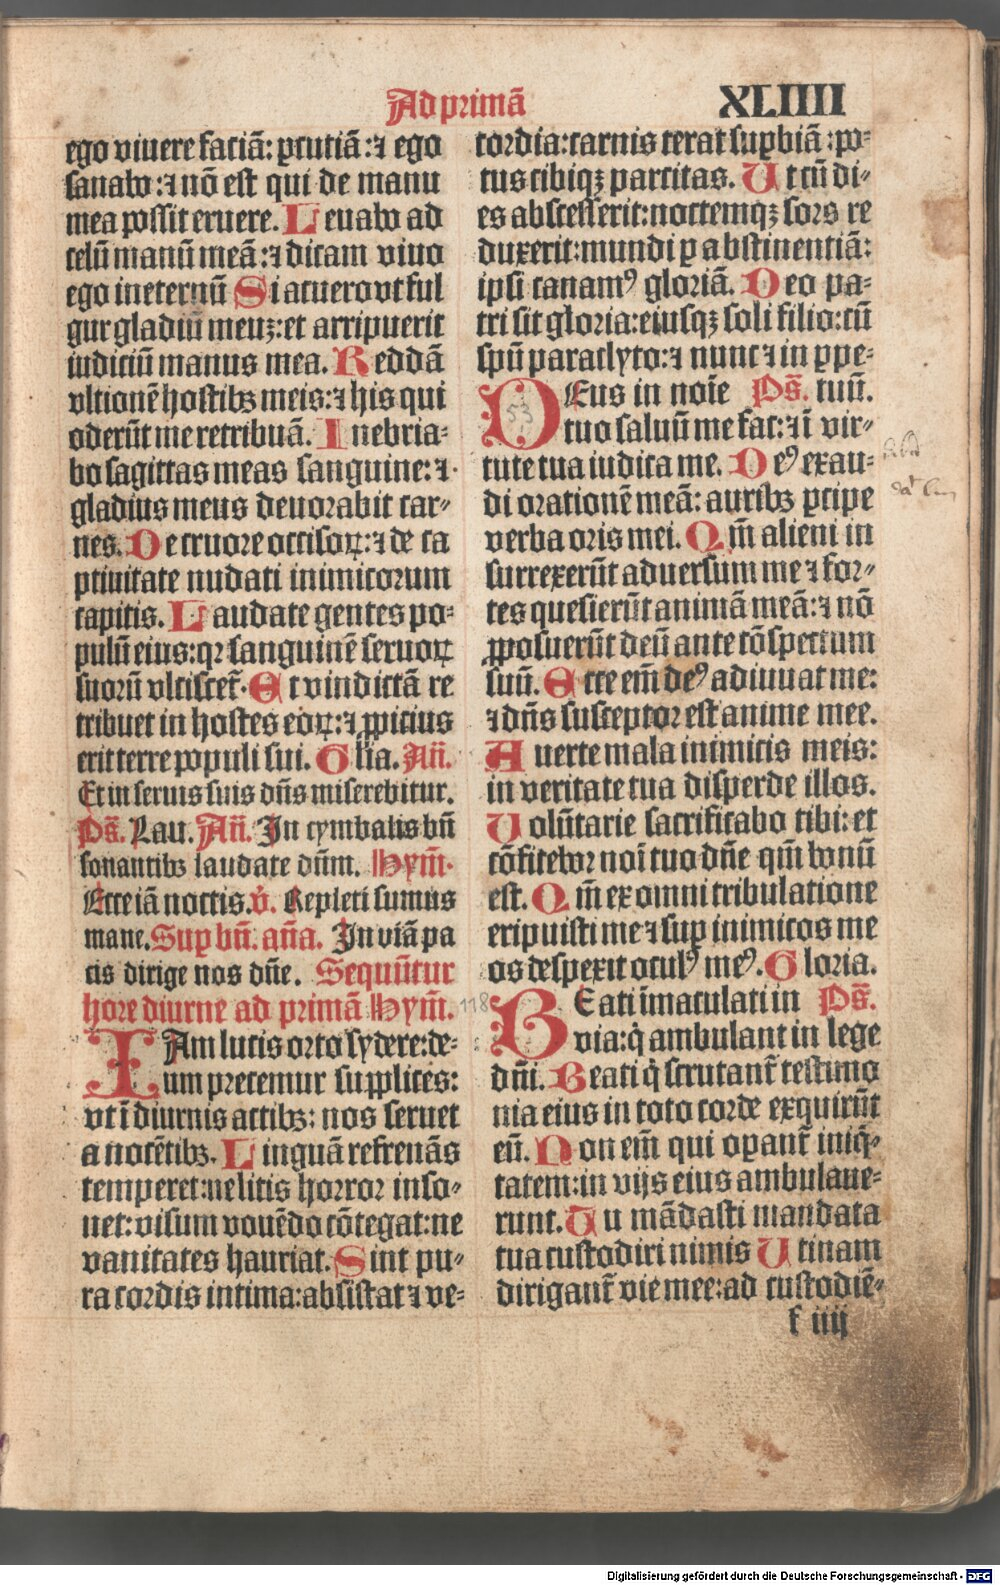 Ad primā
XLIIII
ego viuere faciā: ꝑcutiā: ⁊ ego
sanabo: ⁊ nō est qui de manu
mea possit eruere. Leuabo ad
celū manū meā: ⁊ dicam viuo
ego in eternū Si acuero vt ful
gur gladiū meuꝫ: et arripuerit
iudiciū manus mea. Reddā
vltionē hostibꝫ meis: ⁊ his qui
oderūt me retribuā. Inebria⸗
bo sagittas meas sanguine: ⁊
gladius meus deuorabit car⸗
nes. De cruore occisoꝝ: ⁊ de ca
ptiuitate nudati inimicorum
capitis. Laudate gentes po⸗
pulū eius: qꝛ sanguinē seruoꝝ
suorū vlciscet̄. Et vindictā re
tribuet in hostes eoꝝ: ⁊ ꝓpicius
erit terre populi sui. Glīa. Añ.
Et in seruis suis dn̄s miserebitur.
Ps̄. Lau. Añ. In cymbalis bn̄
sonantibꝫ laudate dn̄m. Hym̄.
Ecce iā noctis. v̄. Repleti sumus
mane. Suꝑ bn̄. an̄a. In viā pa
cis dirige nos dn̄e. Sequūtur
hore diurne ad primā Hym̄.
IAm lucis orto sydere: de⸗
um precemur supplices:
vt ī diurnis actibꝫ: nos seruet
a nocētibꝫ. Linguā refrenās
temperet: ne litis horror inso⸗
net: visum vouēdo cōtegat: ne
vanitates hauriat. Sint pu⸗
ra cordis intima: absistat ⁊ ve⸗
cordia: carnis terat suꝑbiā: po⸗
tus cibiqꝫ parcitas. Ut cū di⸗
es abscesserit: noctemqꝫ sors re
duxerit: mundi ꝑ abstinentiā:
ipsi canamꝰ gloriā. Deo pa⸗
tri sit gloria: eiusqꝫ soli filio: cū
spū paraclyto: ⁊ nunc ⁊ in ꝑpe⸗
DEus in noīe Ps̄. tuū.
53
tuo saluū me fac: ⁊ ī vir⸗
tute tua iudica me. Deꝰ exau⸗
di orationē meā: auribꝫ ꝑcipe
verba oris mei. Qm̄ alieni in
surrexerūt aduersum me ⁊ for⸗
tes quesierūt animā meā: ⁊ nō
ꝓposuerūt deū ante cōspectum
suū. Ecce em̄ deꝰ adiuuat me:
⁊ dn̄s susceptor est anime mee.
Auerte mala inimicis meis:
in veritate tua disperde illos.
Uolūtarie sacrificabo tibi: et
cōfitebor noī tuo dn̄e qm̄ bonū
est. Qm̄ ex omni tribulatione
eripuisti me ⁊ suꝑ inimicos me
os despexit oculꝰ meꝰ. Gloria.
118
BEati īmaculati in Ps̄.
via: q̇ ambulant in lege
dn̄i. Beati q̇ scrutant̄ testimo
nia eius in toto corde exquirūt
eū. Non em̄ qui oꝑant̄ iniq̇⸗
tatem: in vijs eius ambulaue⸗
runt. Tu mādasti mandata
tua custodiri nimis Utinam
dirigant̄ vie mee: ad custodiē⸗
f iiij
Digitalisierung gefördert durch die Deutsche Forschungsgemeinschaft - DFG